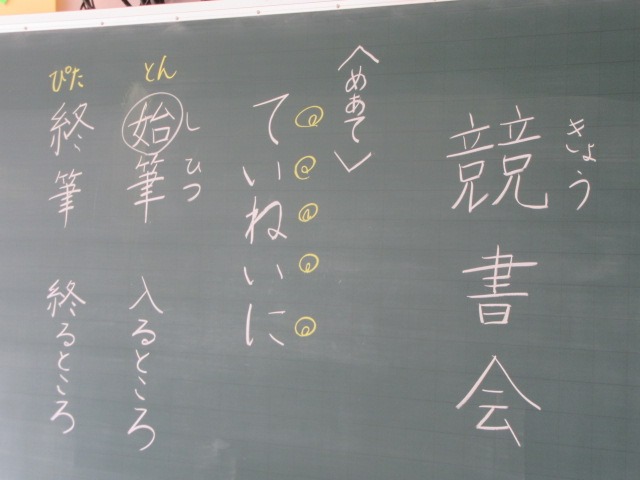 競書会
きょう
〈めあて〉
ていねいに
しひつ
始筆 入るところ
とん
終筆 終るところ
ぴた